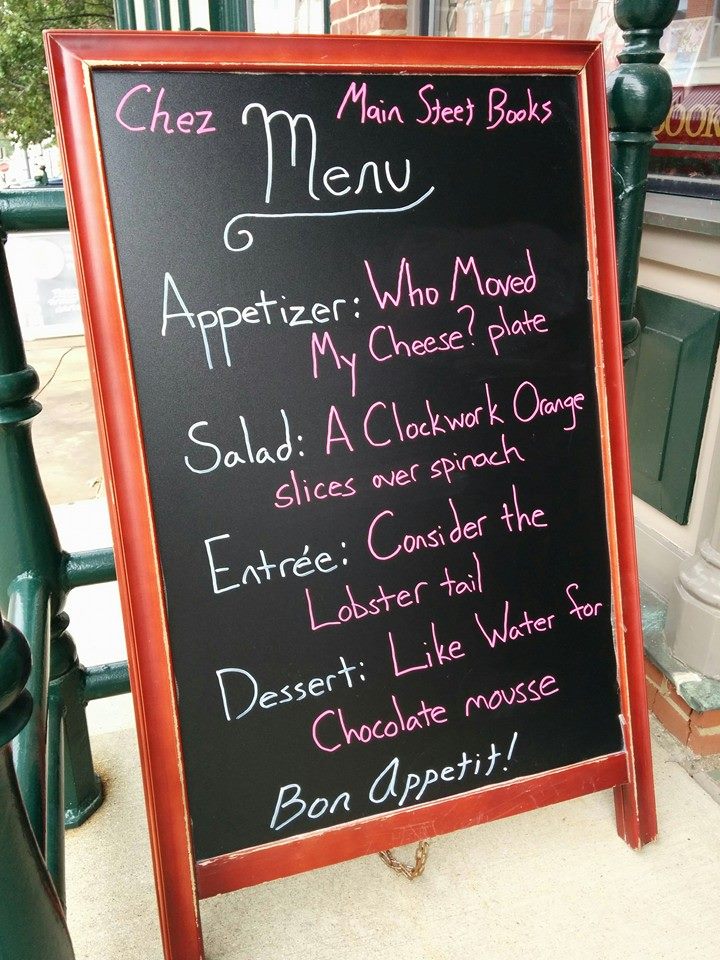 Chez Main Street Books
Menu
Appetizer: Who Moved
My Cheese? plate
Salad: A Clockwork Orange
slices over spinach
Entrée: Consider the
Lobster tail
Dessert: Like Water for
Chocolate mousse
Bon Appetit!